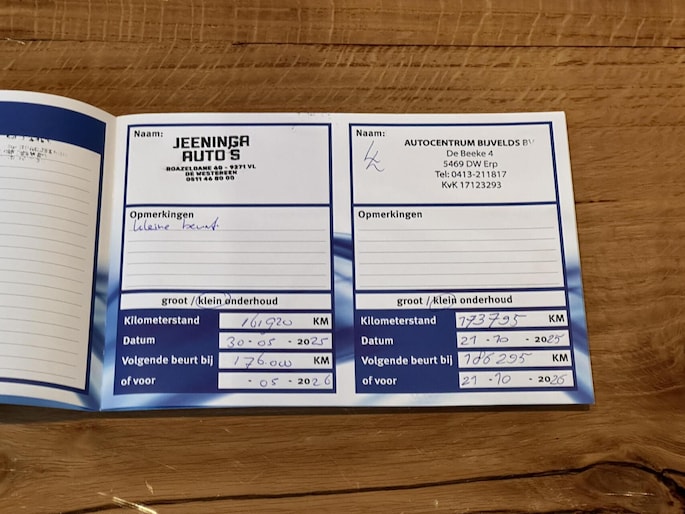 Naam:
JEENINGA
AUTO'S
DE WESTEREEN
0511 44 80 00
Opmerkingen
kleine beurt
groot / klein onderhoud
Kilometerstand 161920 KM
Datum 30-05-2025
Volgende beurt bij 176.000 KM
of voor -05-2026
Naam:
AUTOCENTRUM BIJVELDS BV
De Beeke 4
5469 DW Erp
Tel: 0413-211817
KvK 17123293
Opmerkingen
groot / klein onderhoud
Kilometerstand 173795 KM
Datum 21-10-2025
Volgende beurt bij 186295 KM
of voor 21-10-2026